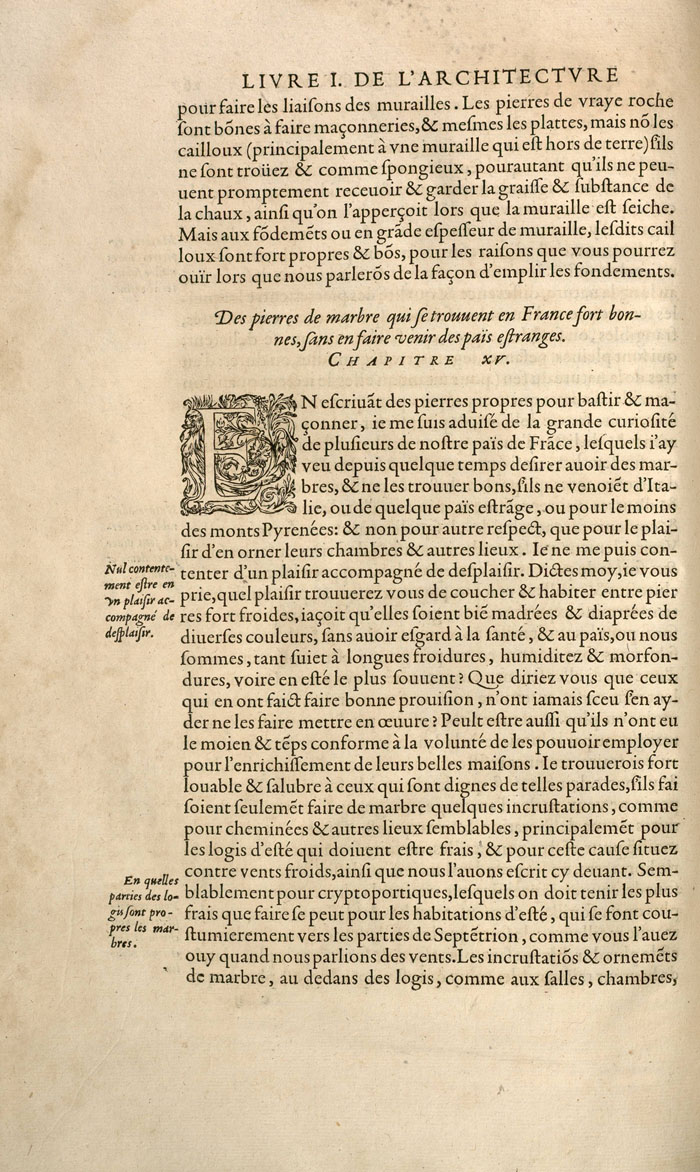 LIVRE I. DE L'ARCHITECTVRE
pour faire les liaiſons des murailles. Les pierres de vraye roche
ſont bõnes à faire maçonneries, & meſmes les plattes, mais nõ les
cailloux (principalement à vne muraille qui eſt hors de terre) ſils
ne ſont troüez & comme ſpongieux, pourautant qu'ils ne peu-
uent promptement receuoir & garder la graiſſe & ſubſtance de
la chaux, ainſi qu'on l'apperçoit lors que la muraille eſt ſeiche.
Mais aux fõdemẽts ou en grãde eſpeſſeur de muraille, leſdits cail
loux ſont fort propres & bõs, pour les raiſons que vous pourrez
ouïr lors que nous parlerõs de la façon d'emplir les fondements.
Des pierres de marbre qui ſe trouuent en France fort bon-
nes, ſans en faire venir des païs eſtranges.
CHAPITRE XV.
EN eſcriuãt des pierres propres pour baſtir & ma-
çonner, ie me ſuis aduiſé de la grande curioſité
de pluſieurs de noſtre païs de Frãce, leſquels i'ay
veu depuis quelque temps deſirer auoir des mar-
bres, & ne les trouuer bons, ſils ne venoiẽt d'Ita-
lie, ou de quelque païs eſtrãge, ou pour le moins
des monts Pyrenées: & non pour autre reſpect, que pour le plai-
ſir d'en orner leurs chambres & autres lieux. Ie ne me puis con-
tenter d'un plaiſir accompagné de deſplaiſir. Dictes moy, ie vous
prie, quel plaiſir trouuerez vous de coucher & habiter entre pier
res fort froides, iaçoit qu'elles ſoient biẽ madrées & diaprées de
diuerſes couleurs, ſans auoir eſgard à la ſanté, & au païs, ou nous
ſommes, tant ſuiet à longues froidures, humiditez & morfon-
dures, voire en eſté le plus ſouuent? Que diriez vous que ceux
qui en ont faict faire bonne prouiſion, n'ont iamais ſceu ſen ay-
der ne les faire mettre en œuure? Peult eſtre auſſi qu'ils n'ont eu
le moien & tẽps conforme à la volunté de les pouuoir employer
pour l'enrichiſſement de leurs belles maiſons. Ie trouuerois fort
louable & ſalubre à ceux qui ſont dignes de telles parades, ſils fai
ſoient ſeulemẽt faire de marbre quelques incruſtations, comme
pour cheminées & autres lieux ſemblables, principalemẽt pour
les logis d'eſté qui doiuent eſtre frais, & pour ceſte cauſe ſituez
contre vents froids, ainſi que nous l'auons eſcrit cy deuant. Sem-
blablement pour cryptoportiques, leſquels on doit tenir les plus
frais que faire ſe peut pour les habitations d'eſté, qui ſe font cou-
ſtumierement vers les parties de Septẽtrion, comme vous l'auez
ouy quand nous parlions des vents. Les incruſtatiõs & ornemẽts
de marbre, au dedans des logis, comme aux ſalles, chambres,
Nul contente-
ment eſtre en
vn plaiſir ac-
compagné de
deſplaiſir.
En quelles
parties des lo-
gis ſont pro-
pres les mar-
bres.